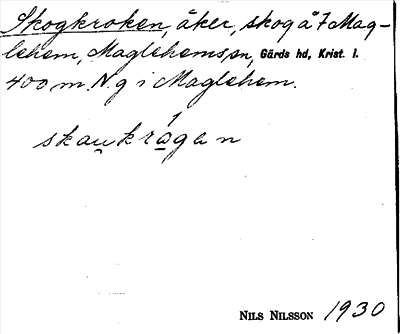 Skogkroken, åker, skog å 7 Mag-
lehem, Maglehems sn, Gärds hd, Krist. l.
400 m. N. g i Maglehem.
skau̯krågan
NILS NILSSON 1930